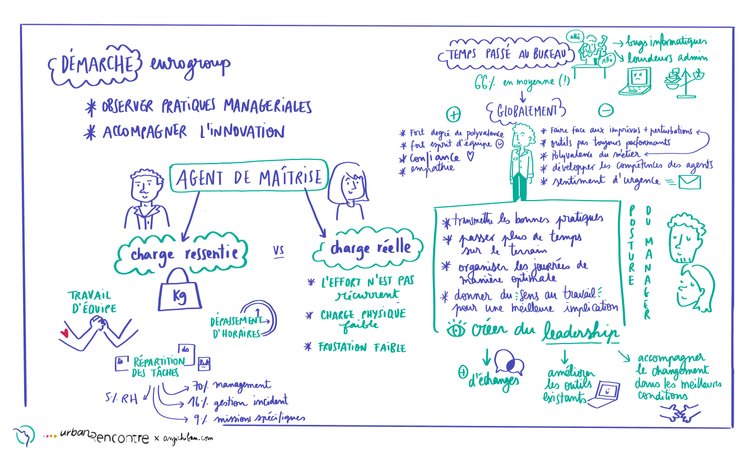 DÉMARCHE eurogroup
* OBSERVER PRATIQUES MANAGERIALES
* ACCOMPAGNER L'INNOVATION
AGENT DE MAÎTRISE
charge ressentie
vs
charge réelle
KG
TRAVAIL
D'ÉQUIPE
DÉPASSEMENT
D'HORAIRES
RÉPARTITION
DES TÂCHES
5% RH
70% management
16% gestion incident
9% missions spécifiques
* L'EFFORT N'EST PAS
récurrent
* CHARGE PHYSIQUE
faible
* FRUSTATION FAIBLE
TEMPS PASSÉ AU BUREAU
bugs informatiques
lourdeurs admin
66% en moyenne (!)
GLOBALEMENT
+
* Fort degré de polyvalence
* fort esprit d'équipe
* confiance
* empathie
-
* Faire face aux imprévus + perturbations
* outils pas toujours performants
* Polyvalence du métier
* développer les compétences des agents
* sentiment d'urgence
* transmettre les bonnes pratiques
* passer plus de temps
sur le terrain
* organiser les journées de
manière optimale
* donner du sens au travail
pour une meilleure implication
créer du leadership
POSTURE
DU MANAGER
+
d'échanges
améliorer
les outils
existants
accompagner
le changement
dans les meilleurs
conditions
urban rencontre x